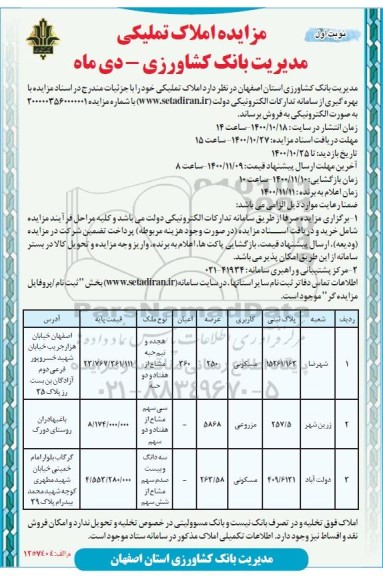 نوبت اول
مزایده املاک تملیکی
مدیریت بانک کشاورزی - دی ماه
مدیریت بانک کشاورزی استان اصفهان در نظر دارد املاک تملیکی خود را با جزئیات مندرج در اسناد مزایده با
بهره گیری از سامانه تدارکات الکترونیکی دولت (www.setadiran.ir) با شماره مزایده ۲۰۰۰۰۰۳۵۶۰۰۰۰۰۱
به صورت الکترونیکی به فروش برساند.
زمان انتشار در سایت: ۱۴۰۰/۱۰/۱۸-ساعت ۱۴
مهلت دریافت اسناد مزایده: ۱۴۰۰/۱۰/۲۷-ساعت ۱۵
تاریخ بازدید: تا ۱۴۰۰/۱۰/۲۵
آخرین مهلت ارسال پیشنهاد قیمت: ۱۴۰۰/۱۱/۰۹-ساعت ۸
زمان بازگشایی: ۱۴۰۰/۱۱/۱۰-ساعت ۱۰
زمان اعلام به برنده: ۱۴۰۰/۱۱/۱۱
ضمنا رعایت موارد ذیل الزامی می باشد:
۱-برگزاری مزایده صرفا از طریق سامانه تدارکات الکترونیکی دولت می باشد و کلیه مراحل فرآیند مزایده
شامل خرید و دریافت اسناد مزایده (در صورت وجود هزینه مربوطه) پرداخت تضمین شرکت در مزایده
(ودیعه)، ارسال پیشنهاد قیمت، بازگشایی پاکت ها، اعلام به برنده، واریز وجه مزایده و تحویل کالا در بستر
سامانه از این طریق امکان پذیر می باشد.
۲-مرکز پشتیبانی و راهبری سامانه: ۴۱۹۳۴-۰۲۱
اطلاعات تماس دفاتر ثبت نام سایر استانها، در سایت سامانه (www.setadiran.ir) بخش "ثبت نام/پروفایل
مزایده گر" موجود است.
ردیف شعبه پلاک ثبتی کاربری عرصه اعیان نوع ملک قیمت پایه آدرس
۱ شهرضا ۱۵۲۶۱/۱۶۲ مسکونی ۲۵۰ ۳۶۰ هجده و نیم حبه مشاع از هفتاد و دو حبه ۲۲/۷۶۷/۳۶۱/۱۱۱ اصفهان خیابان هزار جریب خیابان شهید خسروپور فرعی دوم آزادگان بن بست رز پلاک ۲۵
۲ زرین شهر ۲۵۷/۵ مزروعی ۵۸۶۸ - سی سهم مشاع از هفتاد و دو سهم ۸/۱۷۴/۰۰۰/۰۰۰ باغبهادران روستای دورک
۳ دولت آباد ۴۰۹/۶۱۳۱ مسکونی ۲۶۳/۵۸ - سه دانگ و بیست صدم سهم مشاع از شش سهم ۴/۵۵۳/۲۸۰/۰۰۰ گرگاب بلوار امام خمینی خیابان شهید مطهری کوچه شهید محمد بیدرام پلاک ۲۹
املاک فوق تخلیه و در تصرف بانک نیست و بانک مسوولیتی در خصوص تخلیه و تحویل ندارد و امکان فروش
نقد و اقساط نیز وجود دارد. اطلاعات تکمیلی املاک مذکور در سامانه ستاد موجود است.
م الف: ۱۲۵۷۴۰۴
مدیریت بانک کشاورزی استان اصفهان
۰۲۱-۸۸۳۴۹۶۷۰-۵